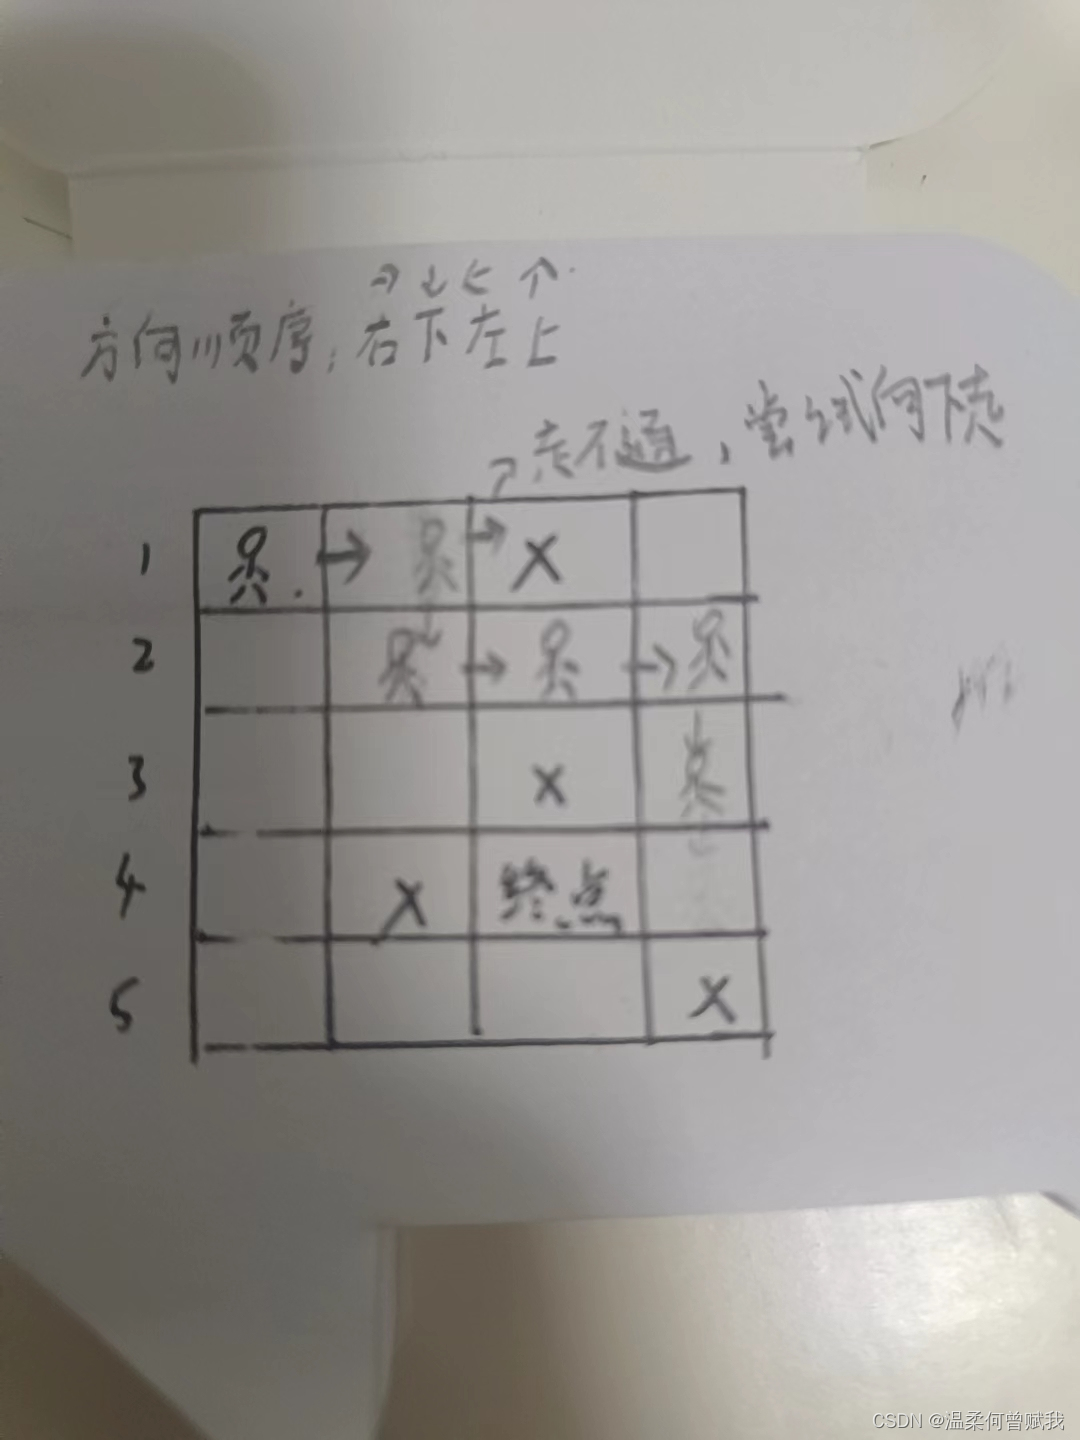 → ↓ ← ↑
方向顺序：右下左上
走不通，尝试向下走
1 → → X
2 → →
3 X
4 X 终点
5 X
CSDN @温柔何曾赋我